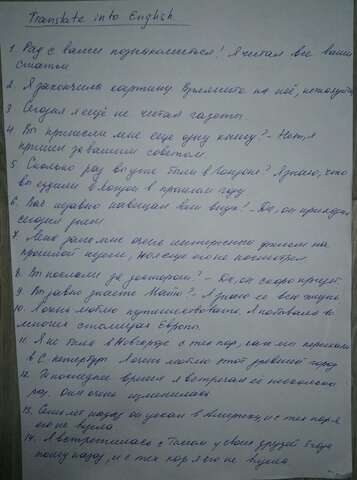 Translate into English.
1. Рад с вами познакомиться! Я читал все ваши
статьи
2. Я закончила картину. Взгляните на неё, пожалуйста
3 Сегодня я ещё не читал газеты
4 Вы принесли мне еще одну книгу? - Нет, я
пришел за вашим советом
5 Сколько раз вы уже были в Лондоне? Я знаю, что
вы ездили в Лондон в прошлом году.
6. Вас недавно навещал ваш - Да, он приходил
сегодня днем
7. Лена дала мне очень интересный фильм на
прошлой неделе, но я еще его не посмотрел
8. Вы послали за доктором? - Да, он скоро придет.
9. Вы давно знаете Майю? - Я знаю ее всю жизнь
10. Я очень люблю путешествовать. Я побывала во
многих столицах Европы.
11. Я не была в Новгороде с тех пор, как мы переехали
в С. Петербург Я очень люблю этот древний город
12. В последнее время я встречал её несколько
раз. Она очень изменилась
13. Семь лет назад он уехал в Америку, и с тех пор я
его не видела.
14. Я встретилась с Томом у своих друзей 2 года
тому назад, и с тех пор я его не видела